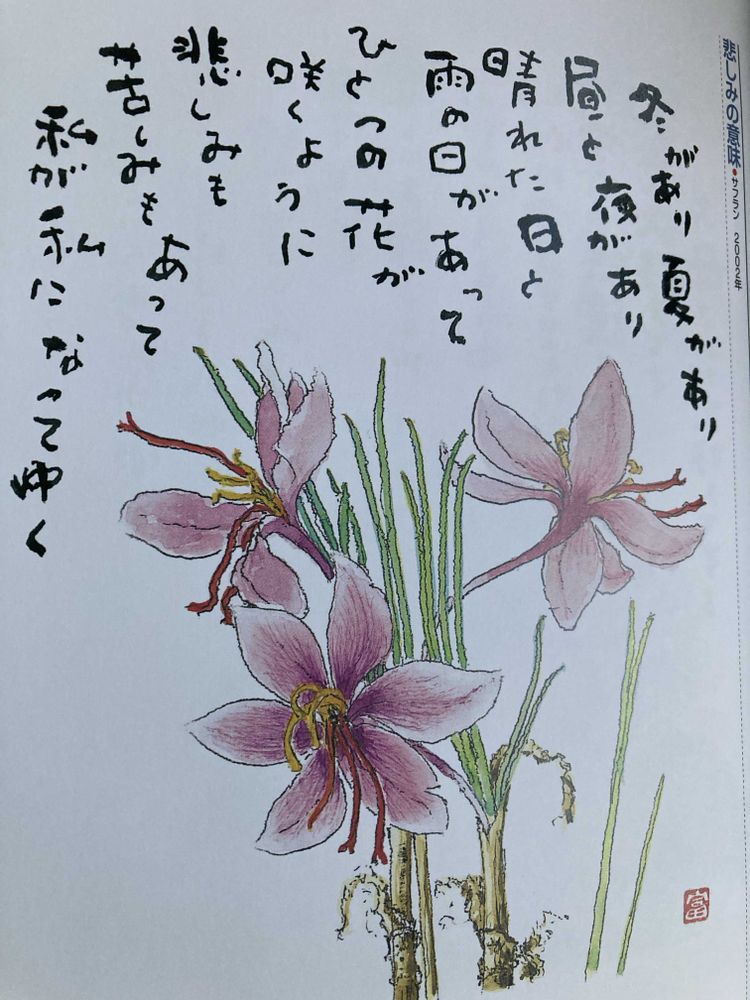 悲しみの意味●サフラン 2002年
冬があり夏があり
昼と夜があり
晴れた日と
雨の日があって
ひとつの花が
咲くように
悲しみも
苦しみもあって
私が私になってゆく
富